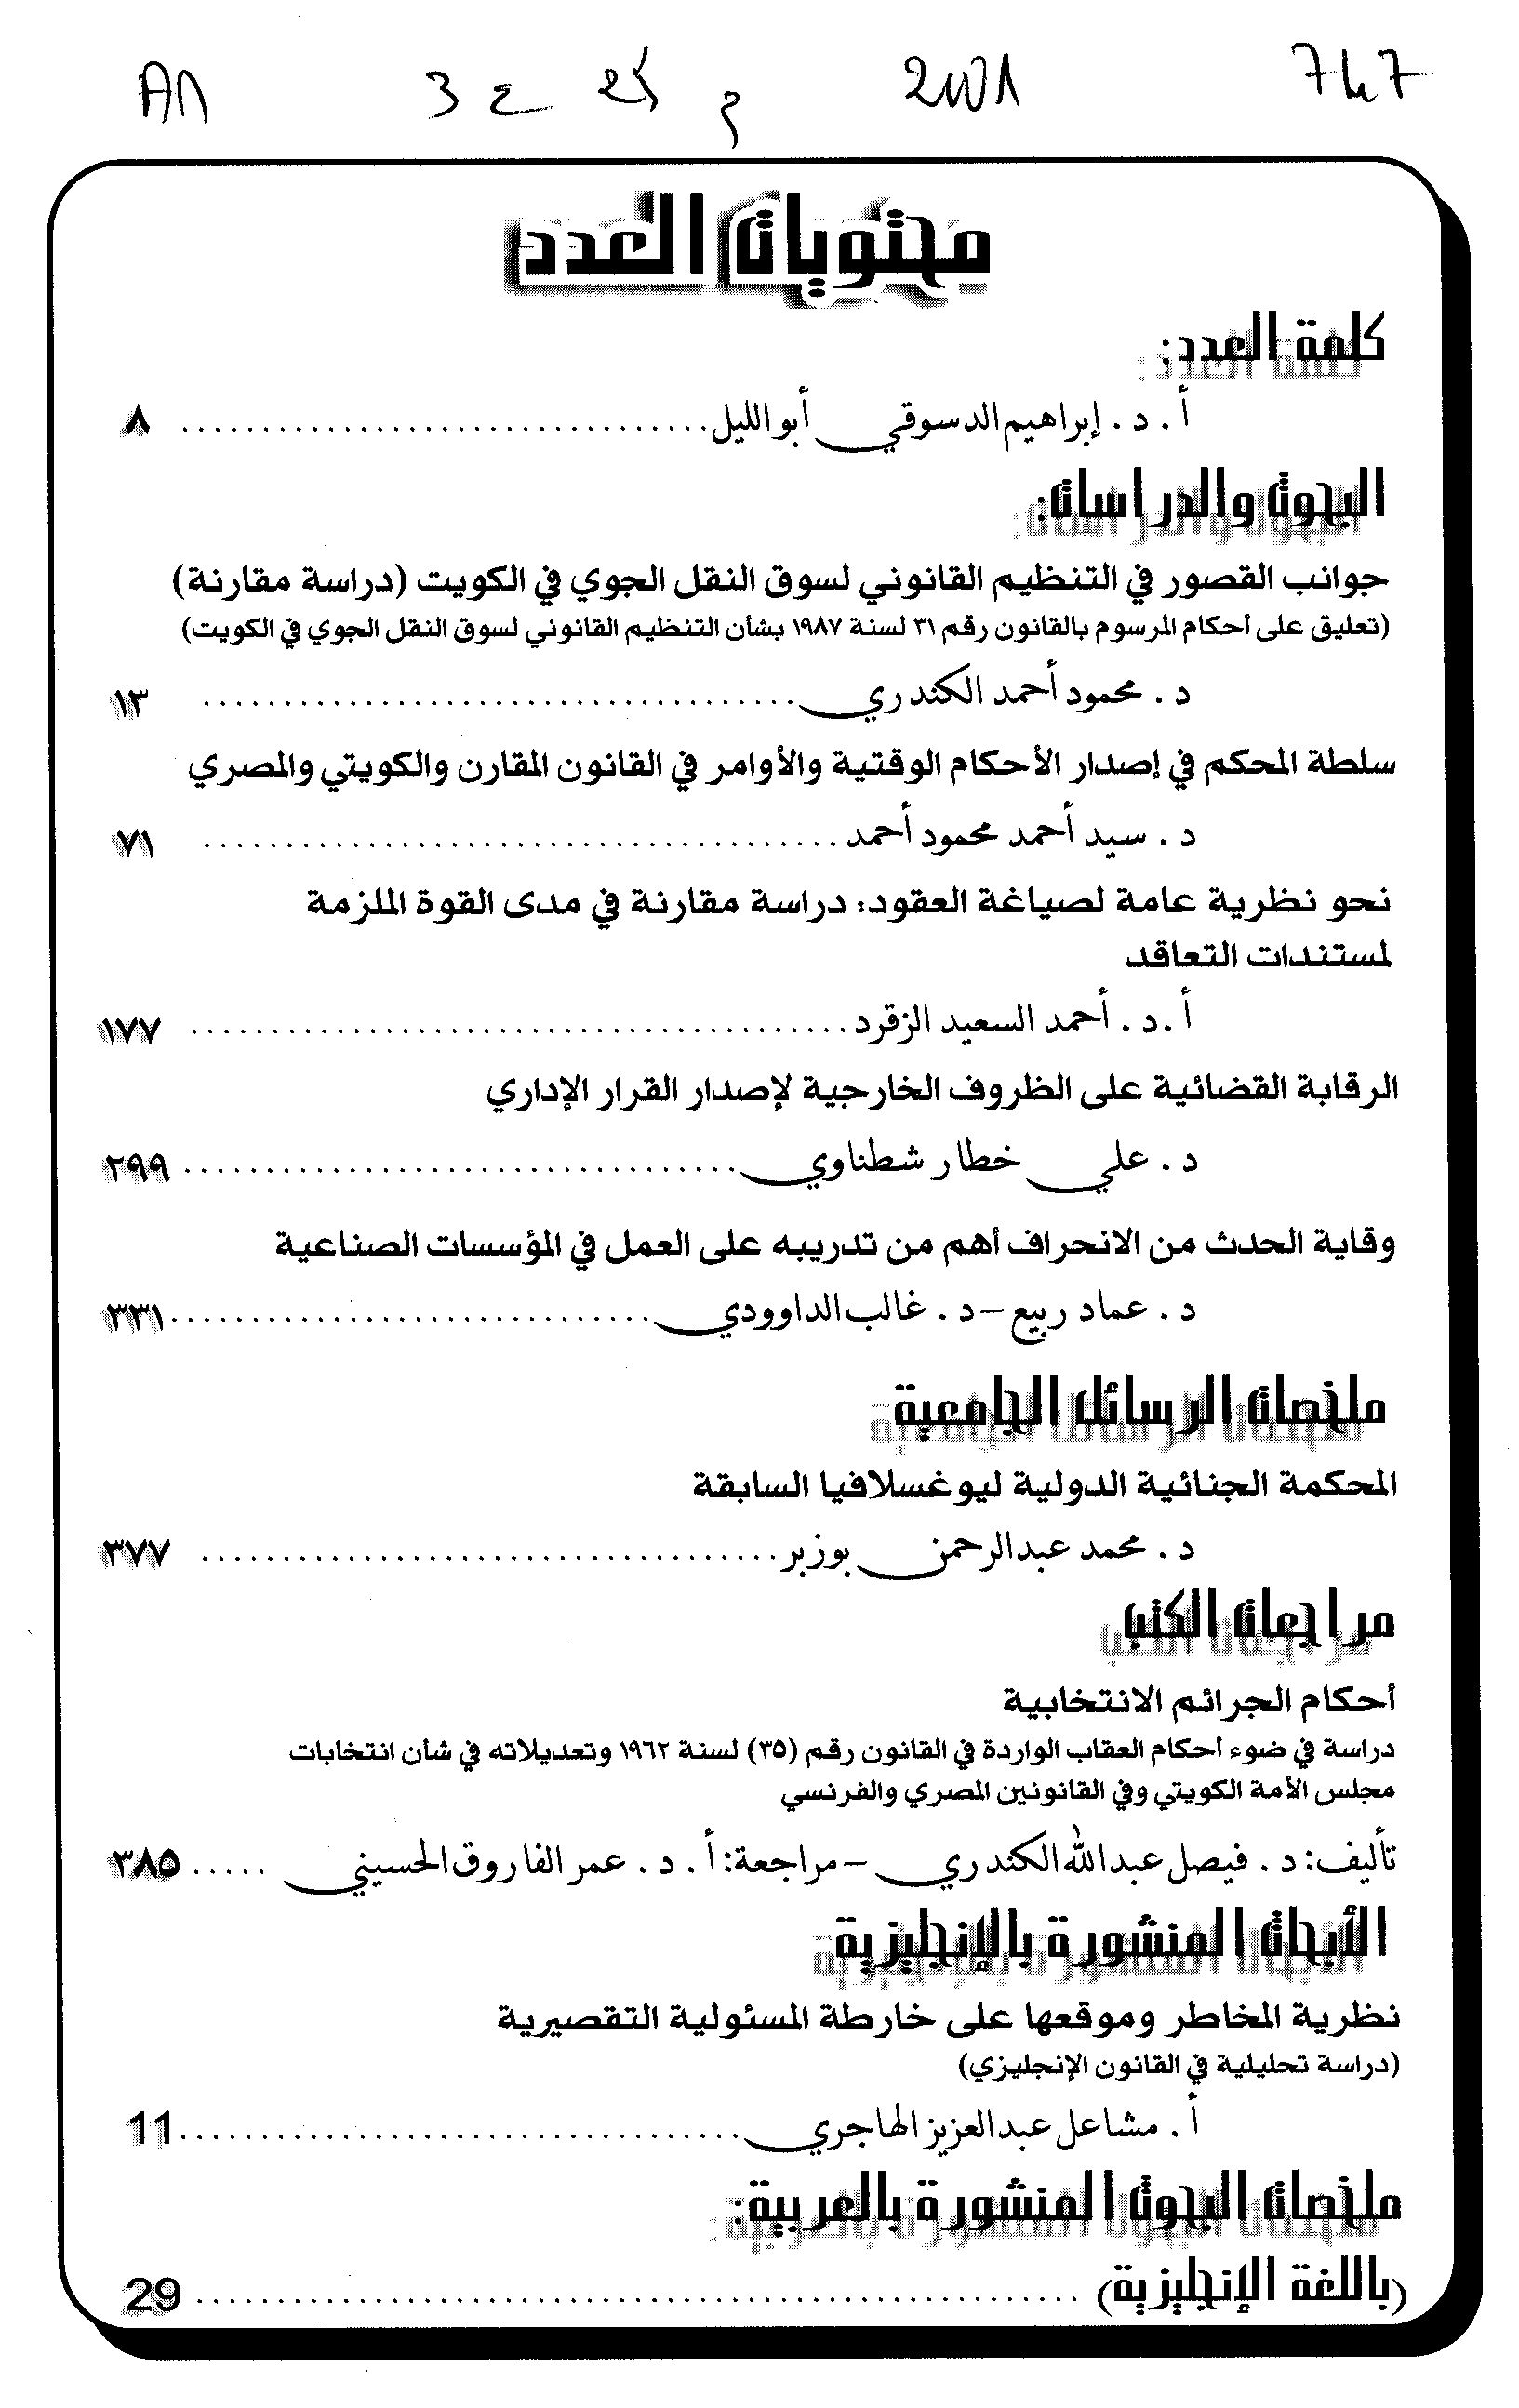 747 2001 م 25 ع 3
محتويات العدد
كلمة العدد:
أ . د . إبراهيم الدسوقي أبو الليل ................................. ٨
البحوث والدراسات:
جوانب القصور في التنظيم القانوني لسوق النقل الجوي في الكويت (دراسة مقارنة)
(تعليق على أحكام المرسوم بالقانون رقم ٣١ لسنة ١٩٨٧ بشأن التنظيم القانوني لسوق النقل الجوي في الكويت)
د . محمود أحمد الكندري ..................................... ١٣
سلطة المحكم في إصدار الأحكام الوقتية والأوامر في القانون المقارن والكويتي والمصري
د . سيد أحمد محمود أحمد ........................................ ٧١
نحو نظرية عامة لصياغة العقود: دراسة مقارنة في مدى القوة الملزمة
لمستندات التعاقد
أ .د . أحمد السعيد الزقرد ......................................... ١٧٧
الرقابة القضائية على الظروف الخارجية لإصدار القرار الإداري
د . علي خطار شطناوي ................................... ٢٩٩
وقاية الحدث من الانحراف أهم من تدريبه على العمل في المؤسسات الصناعية
د . عماد ربيع – د . غالب الداوودي .............................. ٣٣١
ملخصات الرسائل الجامعية
المحكمة الجنائية الدولية ليوغسلافيا السابقة
د . محمد عبدالرحمن بوزبر .................................... ٣٧٧
مراجعات الكتب
أحكام الجرائم الانتخابية
دراسة في ضوء أحكام العقاب الواردة في القانون رقم (٣٥) لسنة ١٩٦٢ وتعديلاته في شأن انتخابات
مجلس الأمة الكويتي وفي القانونين المصري والفرنسي
تأليف: د . فيصل عبدالله الكندري – مراجعة: أ . د . عمر الفاروق الحسيني ..... ٣٨٥
الأبحاث المنشورة بالإنجليزية
نظرية المخاطر وموقعها على خارطة المسئولية التقصيرية
(دراسة تحليلية في القانون الإنجليزي)
أ . مشاعل عبدالعزيز الهاجري ................................... 11
ملخصات البحوث المنشورة بالعربية:
(باللغة الإنجليزية) ....................................................... 29